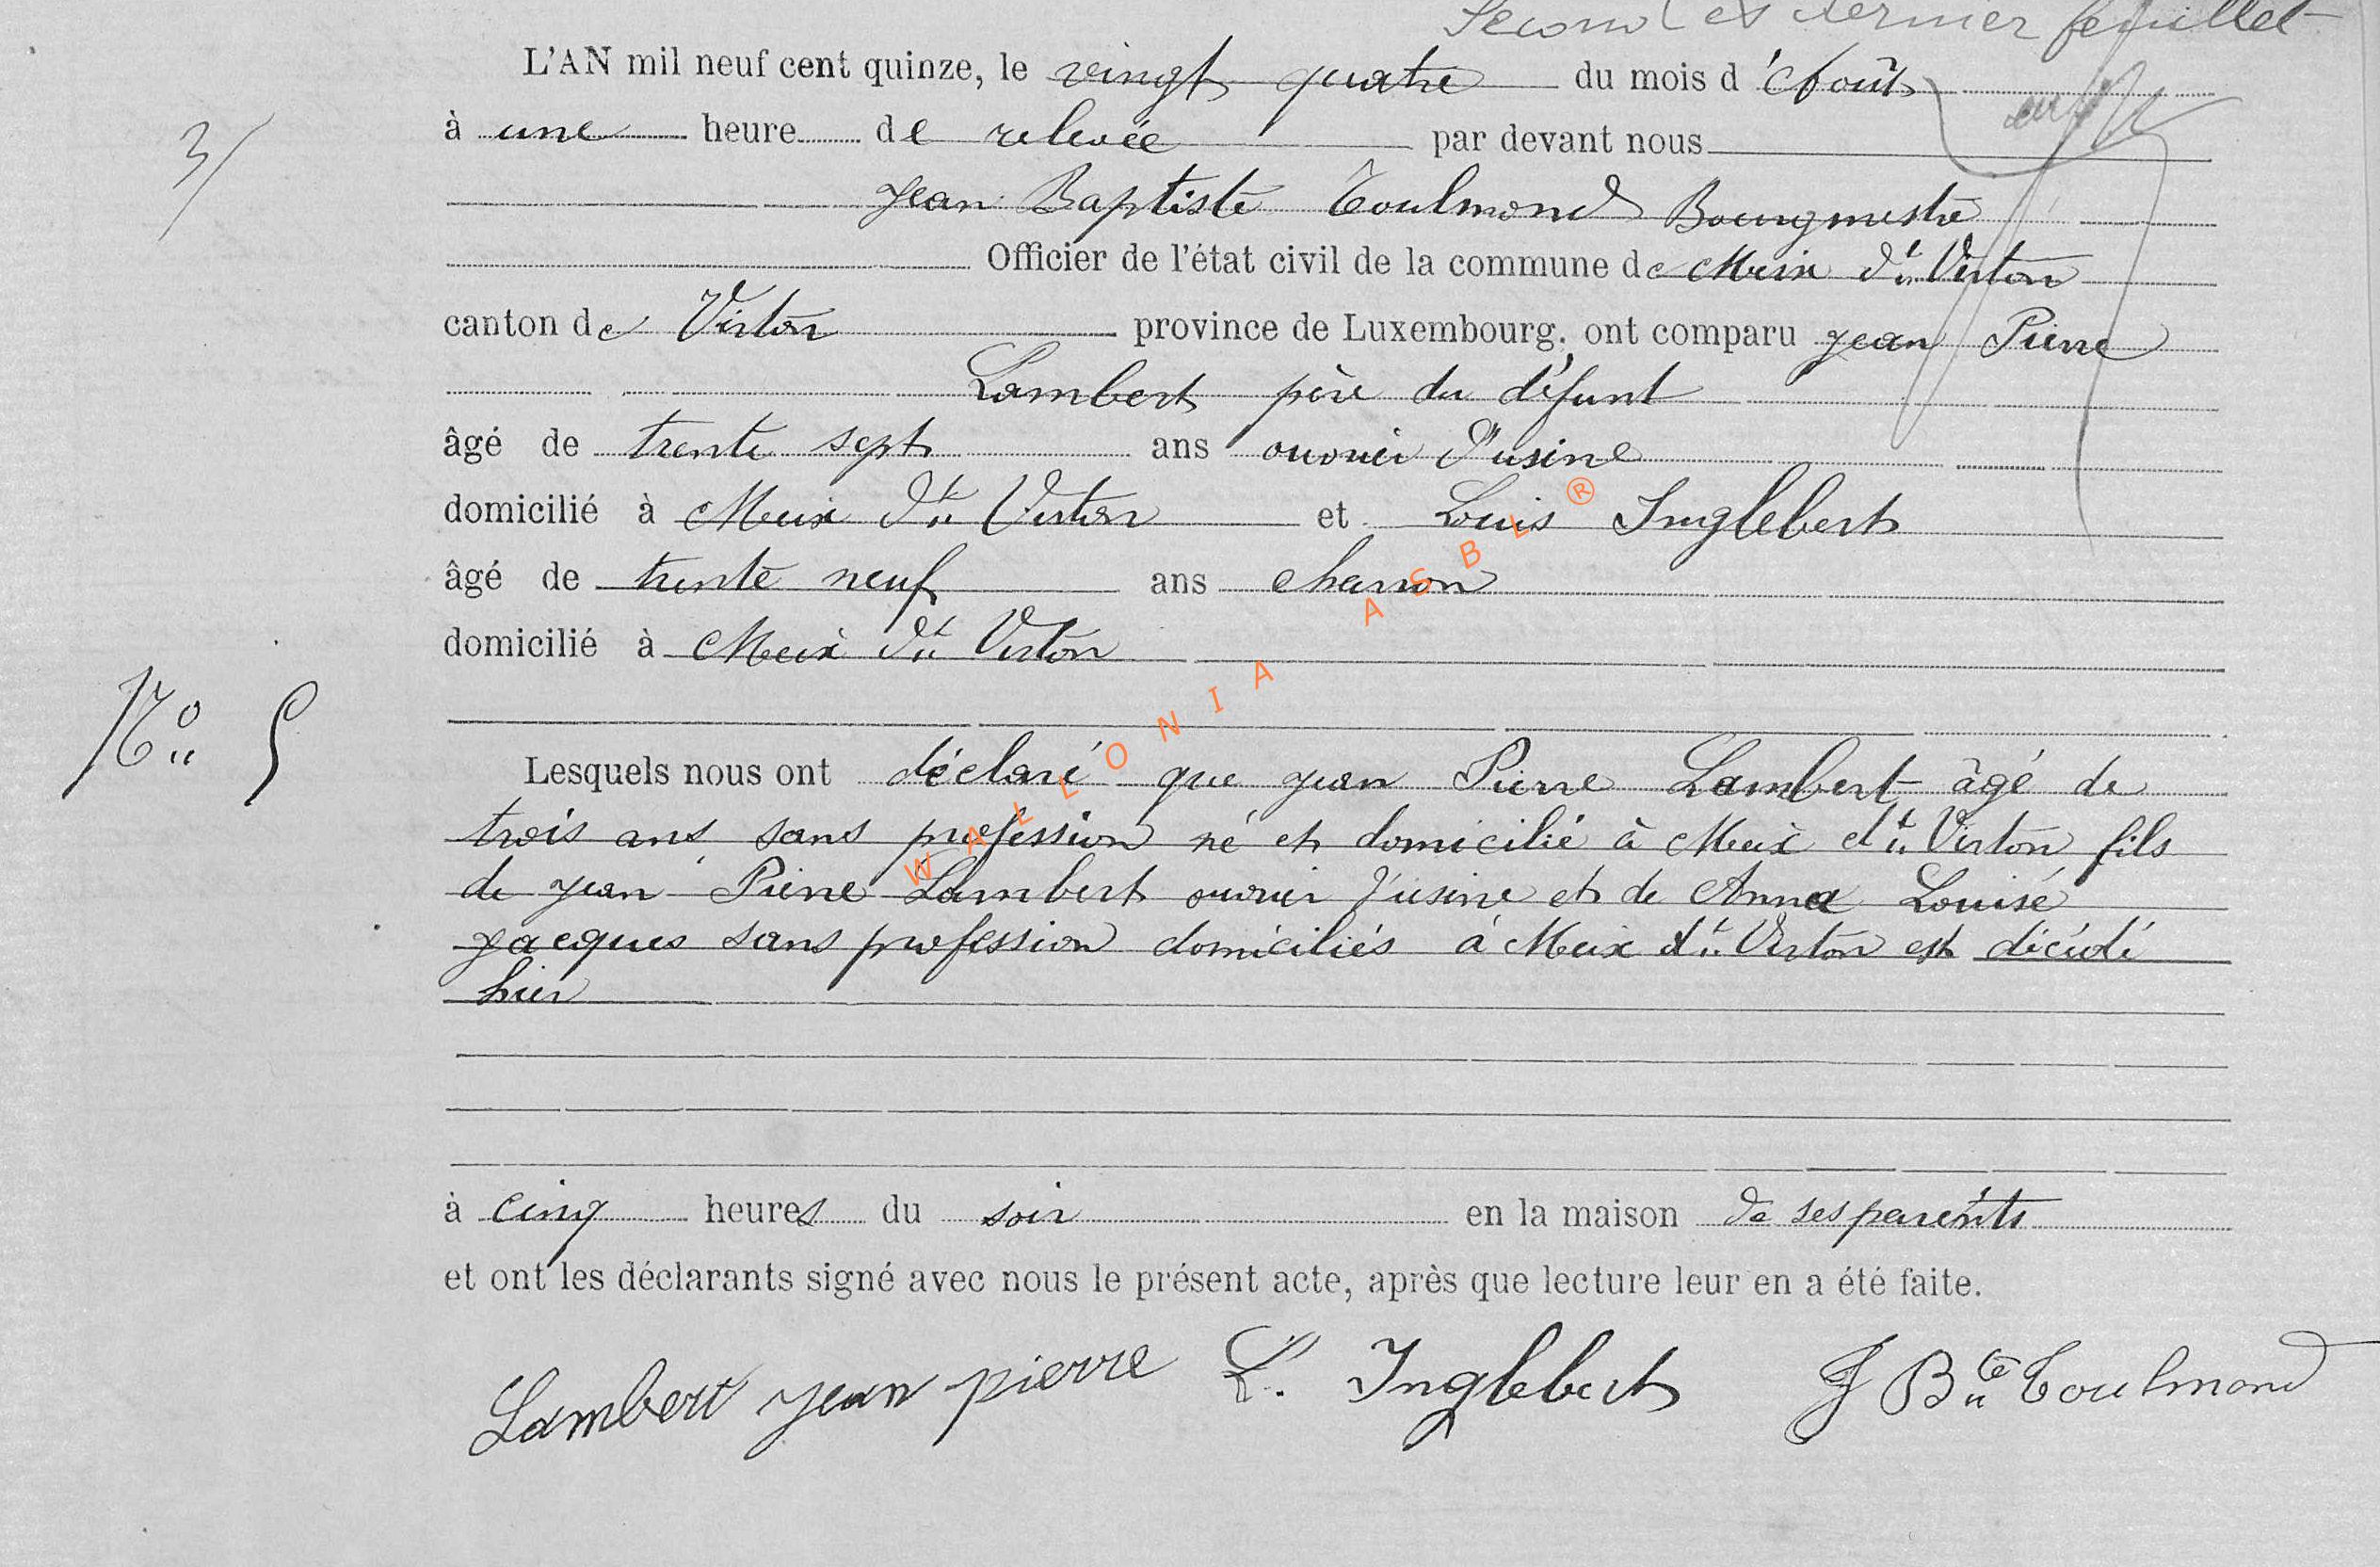 Second et dernier feuillet
L'AN mil neuf cent quinze, le vingt quatre du mois d'Août
à une heure de relevée par devant nous
3/
Jean Baptiste Toulmond Bourgmestre
Officier de l'état civil de la commune de Meix dt Virton
canton de Virton province de Luxembourg, ont comparu Jean Pierre
Lambert père du défunt
âgé de trente sept ans ouvrier d'usine
domicilié à Meix dt Virton et Louis Inglebert
âgé de trente neuf ans charron
domicilié à Meix dt Virton
No 5
Lesquels nous ont déclaré que Jean Pierre Lambert âgé de
trois ans sans profession né et domicilié à Meix dt Virton fils
de Jean Pierre Lambert ouvrier d'usine et de Anna Louise
Jacques sans profession domiciliés à Meix dt Virton est décédé
hier
à cinq heures du soir en la maison de ses parents
et ont les déclarants signé avec nous le présent acte, après que lecture leur en a été faite.
Lambert jean pierre L. Inglebert J Bte Toulmond
WALLONIA ASBL ®